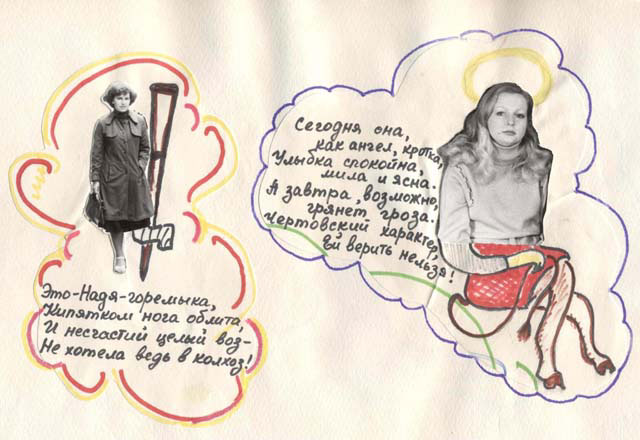 Это-Надя-горемыка,
Кипятком нога облита,
И несчастий целый воз-
Не хотела ведь в колхоз!
Сегодня она,
как ангел, кротка,
Улыбка спокойна,
мила и ясна.
А завтра, возможно,
грянет гроза.
Чертовский характер,
ей верить нельзя!